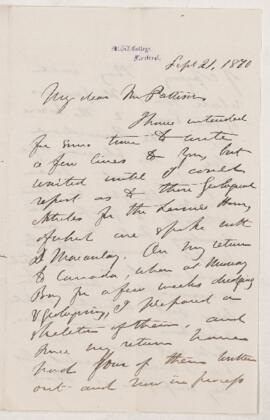 McGill College,
Montreal.
Sept 21, 1870
My dear Mr Pattison
I have intended
for some time to write
a few lines to you, but
waited until I could
report as to the Geological
Articles for the Leisure Hour,
of which we spoke with
Dr Macaulay. On my return
to Canada, when at Murray
Bay for a few weeks dredging
& geologizing, I prepared a
skeleton of them, and
since my return home
had four of them written
out and now in